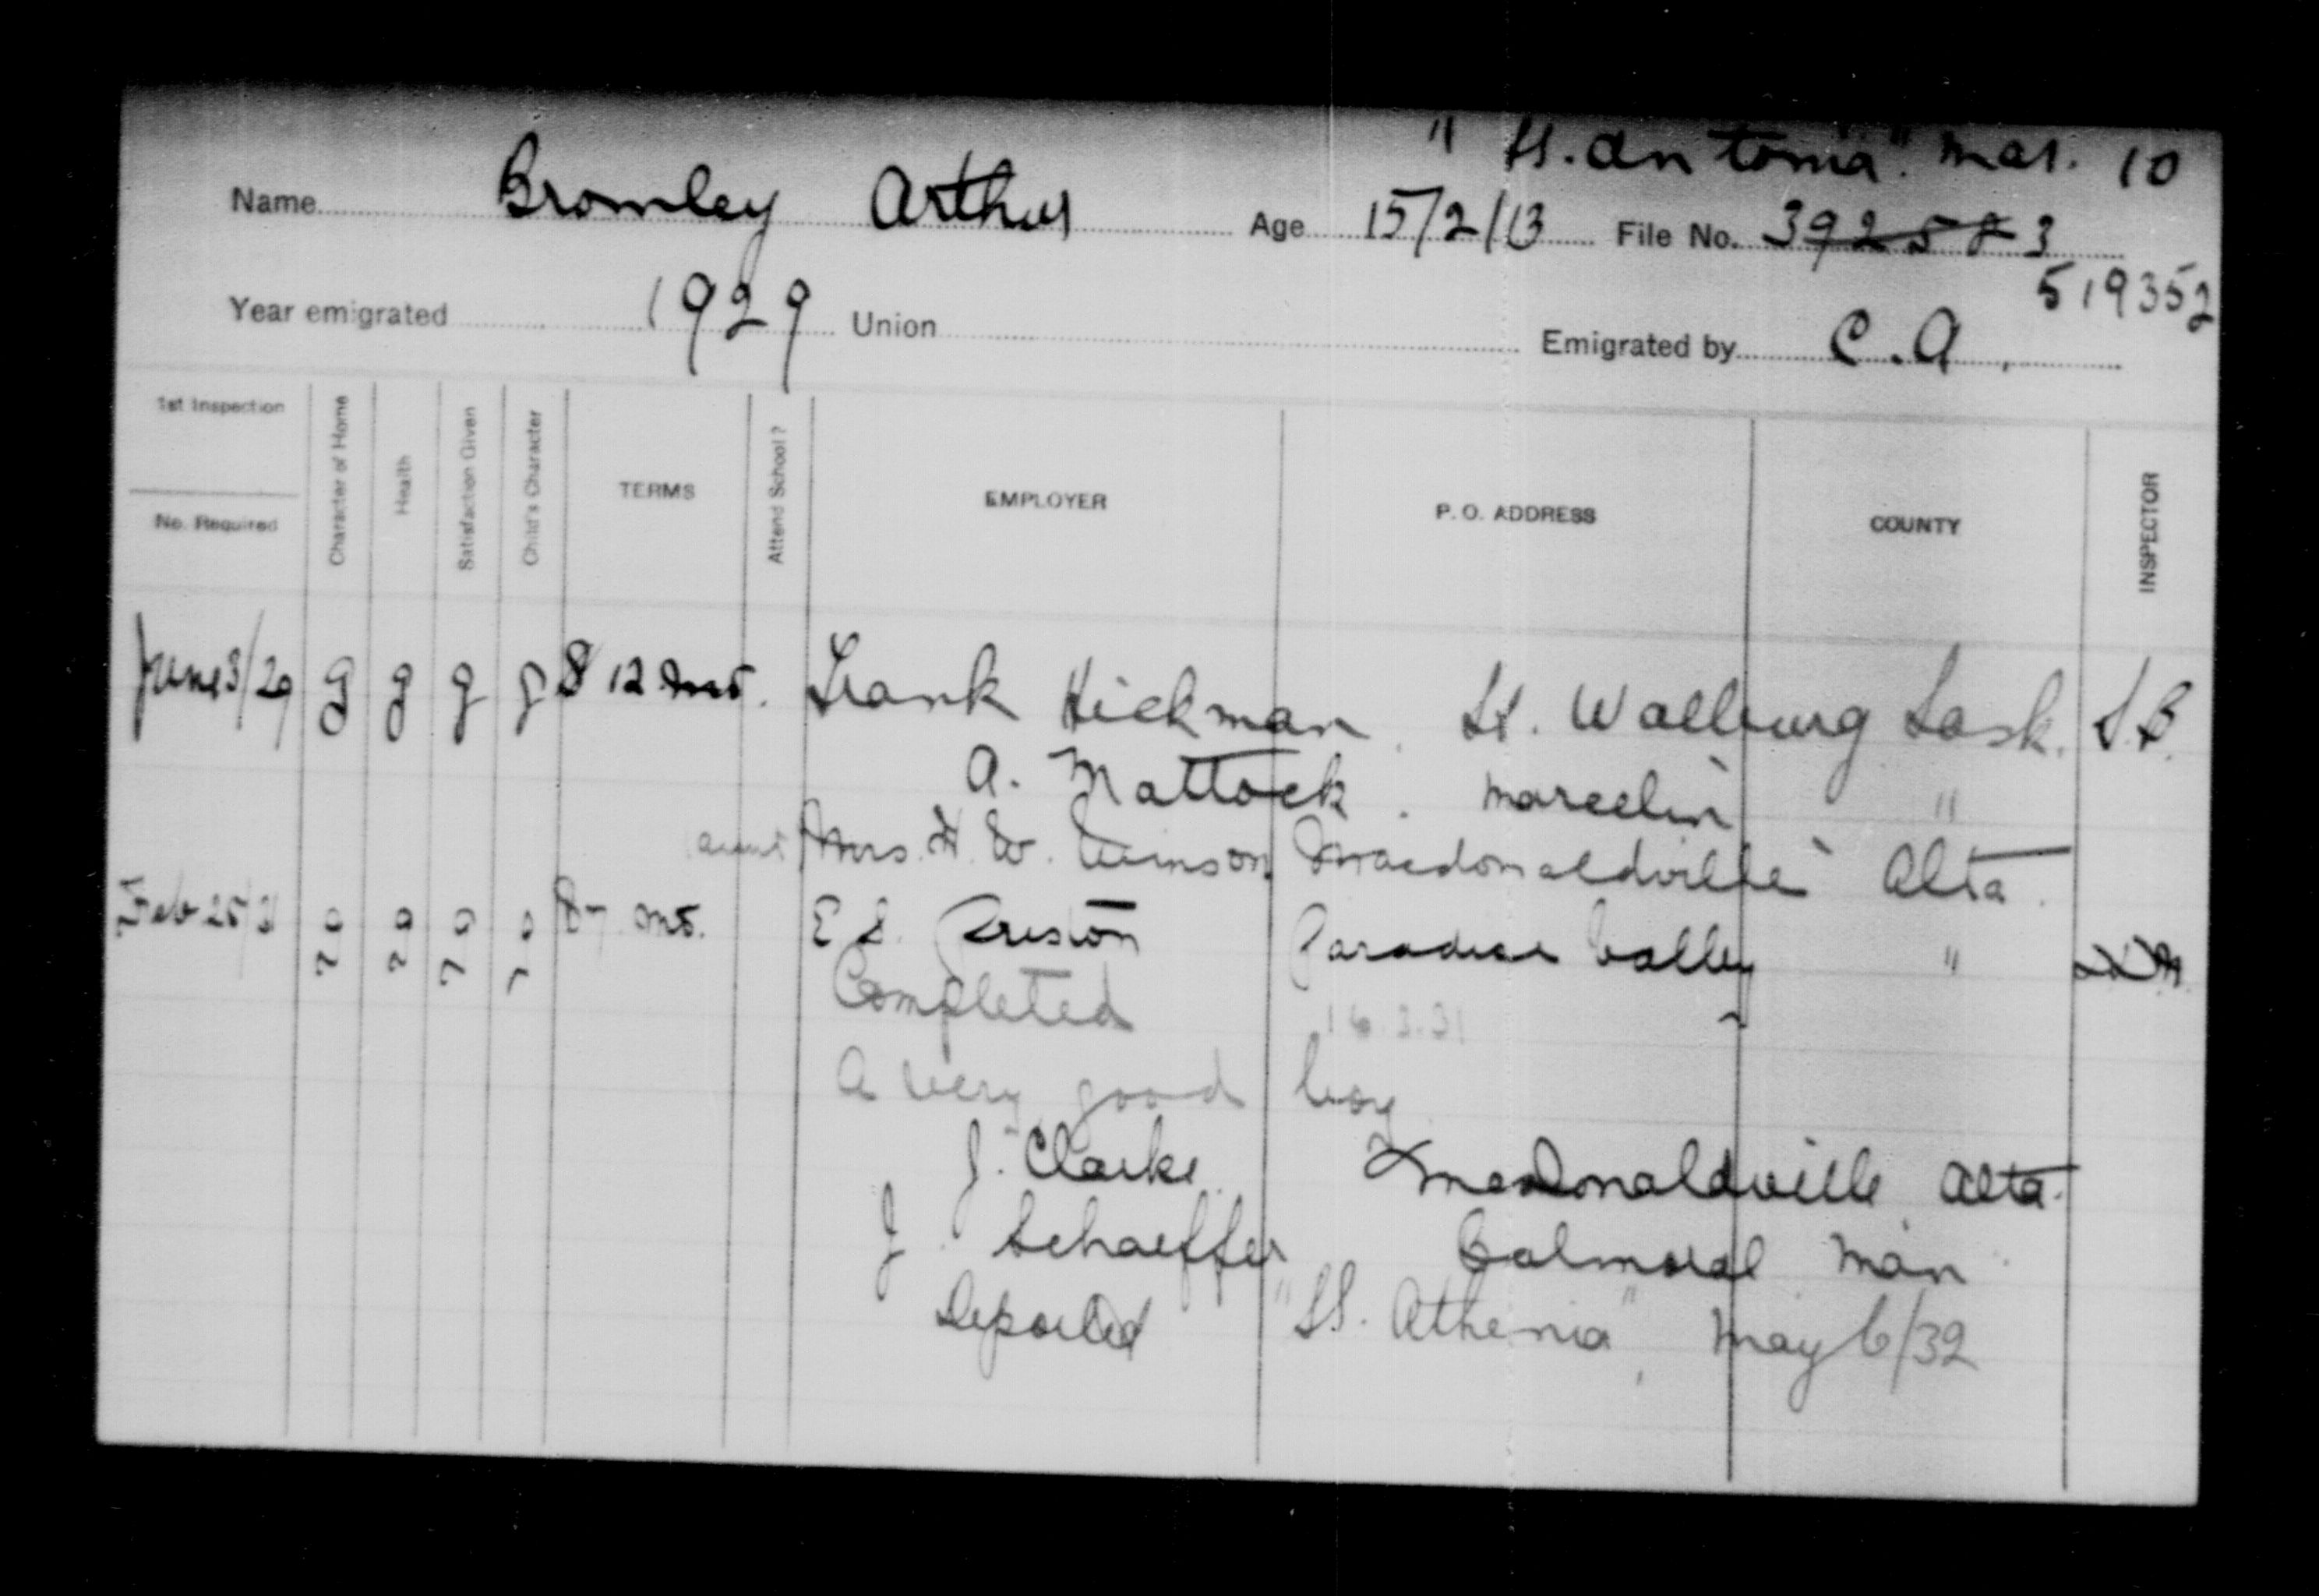 "SS. Antonia" Mar. 10
Name Bromley Arthur Age 15/2/13 File No. 392583
519352
Year emigrated 1929 Union Emigrated by C.A.
1st Inspection
No. Required
Character of Home
Health
Satisfaction Given
Child's Character
TERMS
Attend School?
EMPLOYER
P. O. ADDRESS
COUNTY
INSPECTOR
June 3/29 g g g g $12 mo. Frank Hickman St. Walburg Sask. S.B.
A. Mattock. Marcelin "
aunt Mrs. H. W. Macdonaldville Alta.
Feb 25/31 mo. E S. Preston Paradise Valley "
Completed 16.3.31
A very good boy
J. Clarke MacDonaldville Alta.
J. Schaeffer Balmoral Man
Deported "SS. Athenia", May 6/32